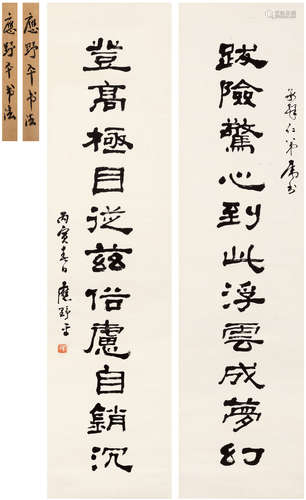 應野平书法
應野平书法
跋險驚心到此浮雲成夢幻
仁弟属书
登高極目從兹俗慮自銷沉
丙寅春日應野平